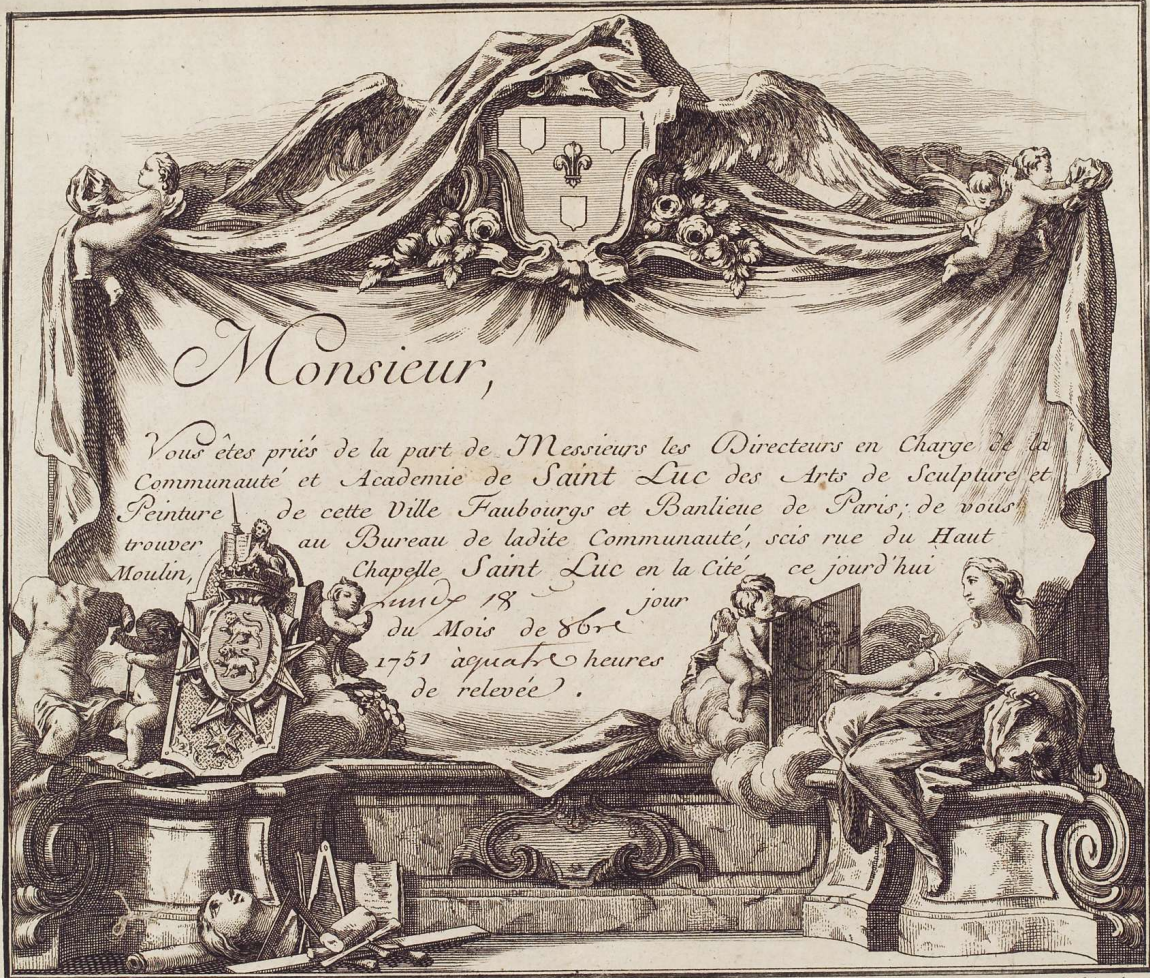 Monsieur,
Vous êtes priés de la part de Messieurs les Directeurs en Charge de la
Communauté et Academie de Saint Luc des Arts de Sculpture et
Peinture de cette Ville Faubourgs et Banlieue de Paris; de vous
trouver au Bureau de ladite Communauté, scis rue du Haut
Moulin, Chapelle Saint Luc en la Cité ce jourd'hui
Lundy 18 jour
du Mois de 8bre
1751 à quatre heures
de relevée.